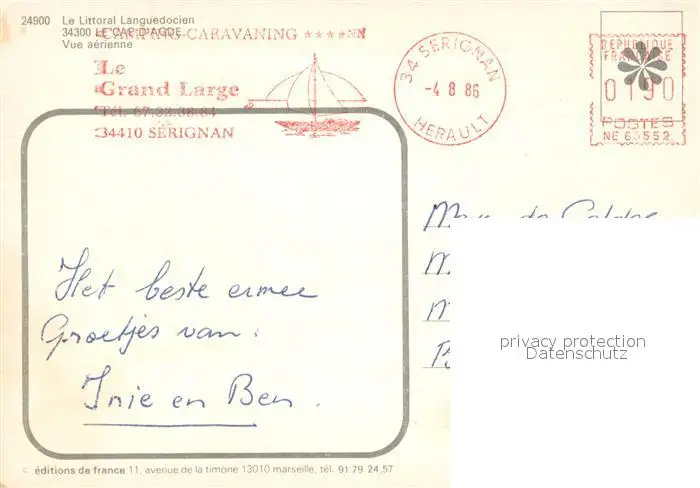 24900 Le Littoral Languedocien
34300 LE CAP D'AGDE
Vue aérienne
CAMPING-CARAVANING ★★★★NN
Le
Grand Large
34410 SÉRIGNAN
34 SERIGNAN
-4 8 86
HERAULT
REPUBLIQUE
FRANCAISE
0190
POSTES
Het beste ermee
Groetjes van:
Inie en Ben.
privacy protection
Datenschutz
éditions de france 11, avenue de la timone 13010 marseille, tél. 91 79 24 57